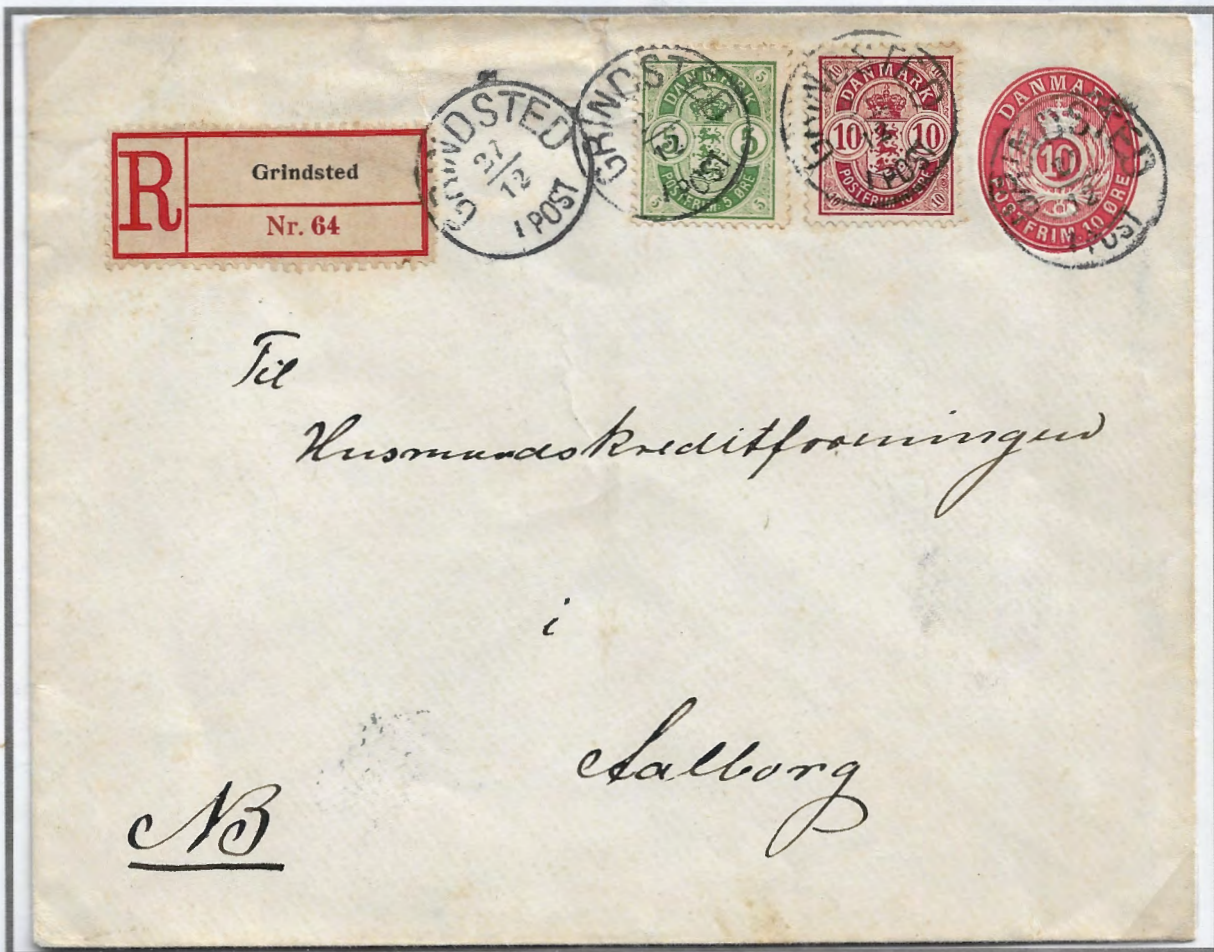 R
Grindsted
Nr. 64
GRINDSTED
27/12
1 POST
GRINDSTED
12
1 POST
DANMARK
5 5
5 5
POSTFRIM. 5 ØRE
5 5
GRINDSTED
1 POST
DANMARK
10 10
10 10
POSTFRIM. 10 ØRE
10 10
DANMARK
10
POSTFRIM. 10 ØRE
GRINDSTED
12
1 POST
Til
Husmandskreditforeningen
i
Aalborg
NB